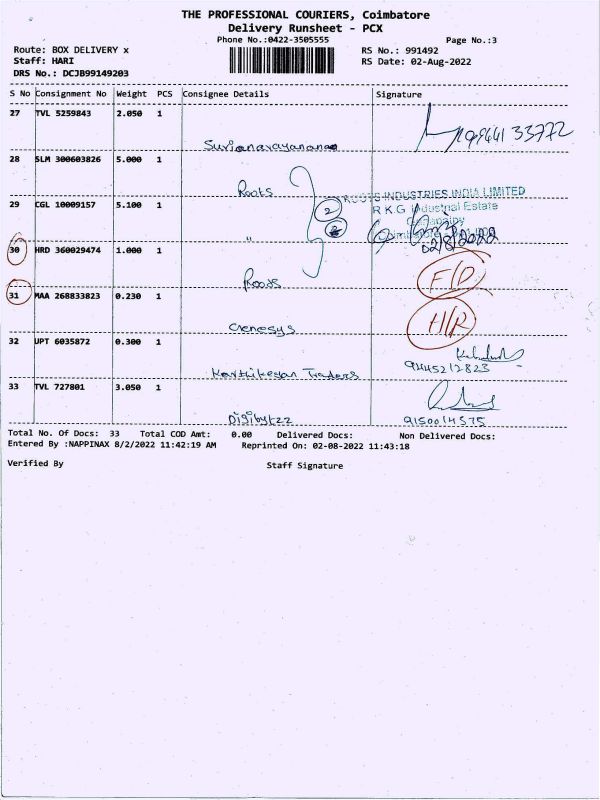 THE PROFESSIONAL COURIERS, Coimbatore
Delivery Runsheet - PCX
Phone No.:0422-3505555
Page No.:3
Route: BOX DELIVERY x
RS No.: 991492
Staff: HARI
RS Date: 02-Aug-2022
DRS No.: DCJB99149203
S No Consignment No Weight PCS Consignee Details Signature
27 TVL 5259843 2.050 1
Surianarayanan 33772
28 SLM 300603826 5.000 1
Roots
ROOTS INDUSTRIES INDIA LIMITED
29 CGL 10009157 5.100 1
2 R.K.G Industrial Estate
Ganapathy
"
02/8/2022
30 HRD 360029474 1.000 1
Roots
F/D
31 MAA 268833823 0.230 1
H/R
Genesys
32 UPT 6035872 0.300 1
Karthikeyan Traders 9445212823
33 TVL 727801 3.050 1
Digibytzz 9150014575
Total No. Of Docs: 33 Total COD Amt: 0.00 Delivered Docs: Non Delivered Docs:
Entered By :NAPPINAX 8/2/2022 11:42:19 AM Reprinted On: 02-08-2022 11:43:18
Verified By Staff Signature